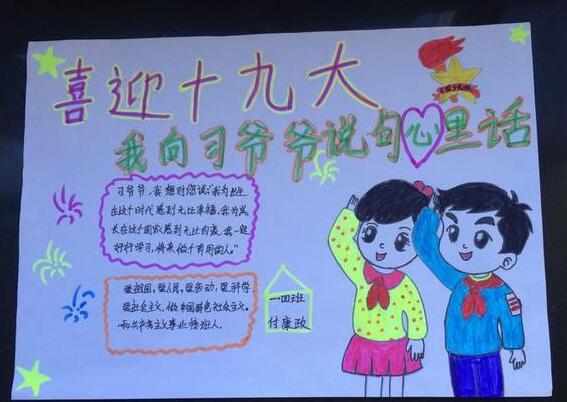 喜迎十九大
我向习爷爷说句心里话
习爷爷，我想对您说：“我为出生
在这个时代感到无比幸福，我为成
长在这个国家感到无比自豪，我一定
好好学习，将来做个有用的人。”
爱祖国，爱人民，爱劳动，爱科学，
爱社会主义，做中国特色社会主义
和共产主义事业接班人。
一四班
付康政